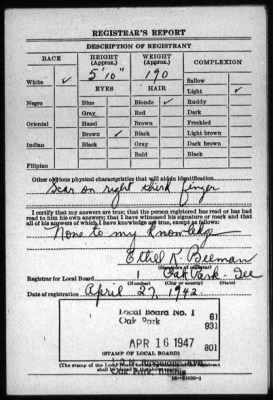 REGISTRAR'S REPORT
DESCRIPTION OF REGISTRANT
RACE HEIGHT (Approx.) WEIGHT (Approx.) COMPLEXION
5' 10" 190
White ✓ Sallow
EYES HAIR Light ✓
Negro Blue Blonde ✓ Ruddy
Gray Red Dark
Oriental Hazel Brown Freckled
Brown ✓ Black Light brown
Indian Black Gray Dark brown
Bald Black
Filipino
Other obvious physical characteristics that will aid in identification
Scar on right third finger
I certify that my answers are true; that the person registered has read or has had
read to him his own answers; that I have witnessed his signature or mark and that
all of his answers of which I have knowledge are true, except as follows:
None to my knowledge
Ethel K. Beeman
(Signature of registrar)
Registrar for Local Board 1 Oak Park - Ill
(Number) (City or county) (State)
Date of registration April 27, 1942
Local Board No. 1 61
Oak Park 931
APR 16 1947 801
(STAMP OF LOCAL BOARD)
(The stamp of the Local Board
Oak Park, Illinois